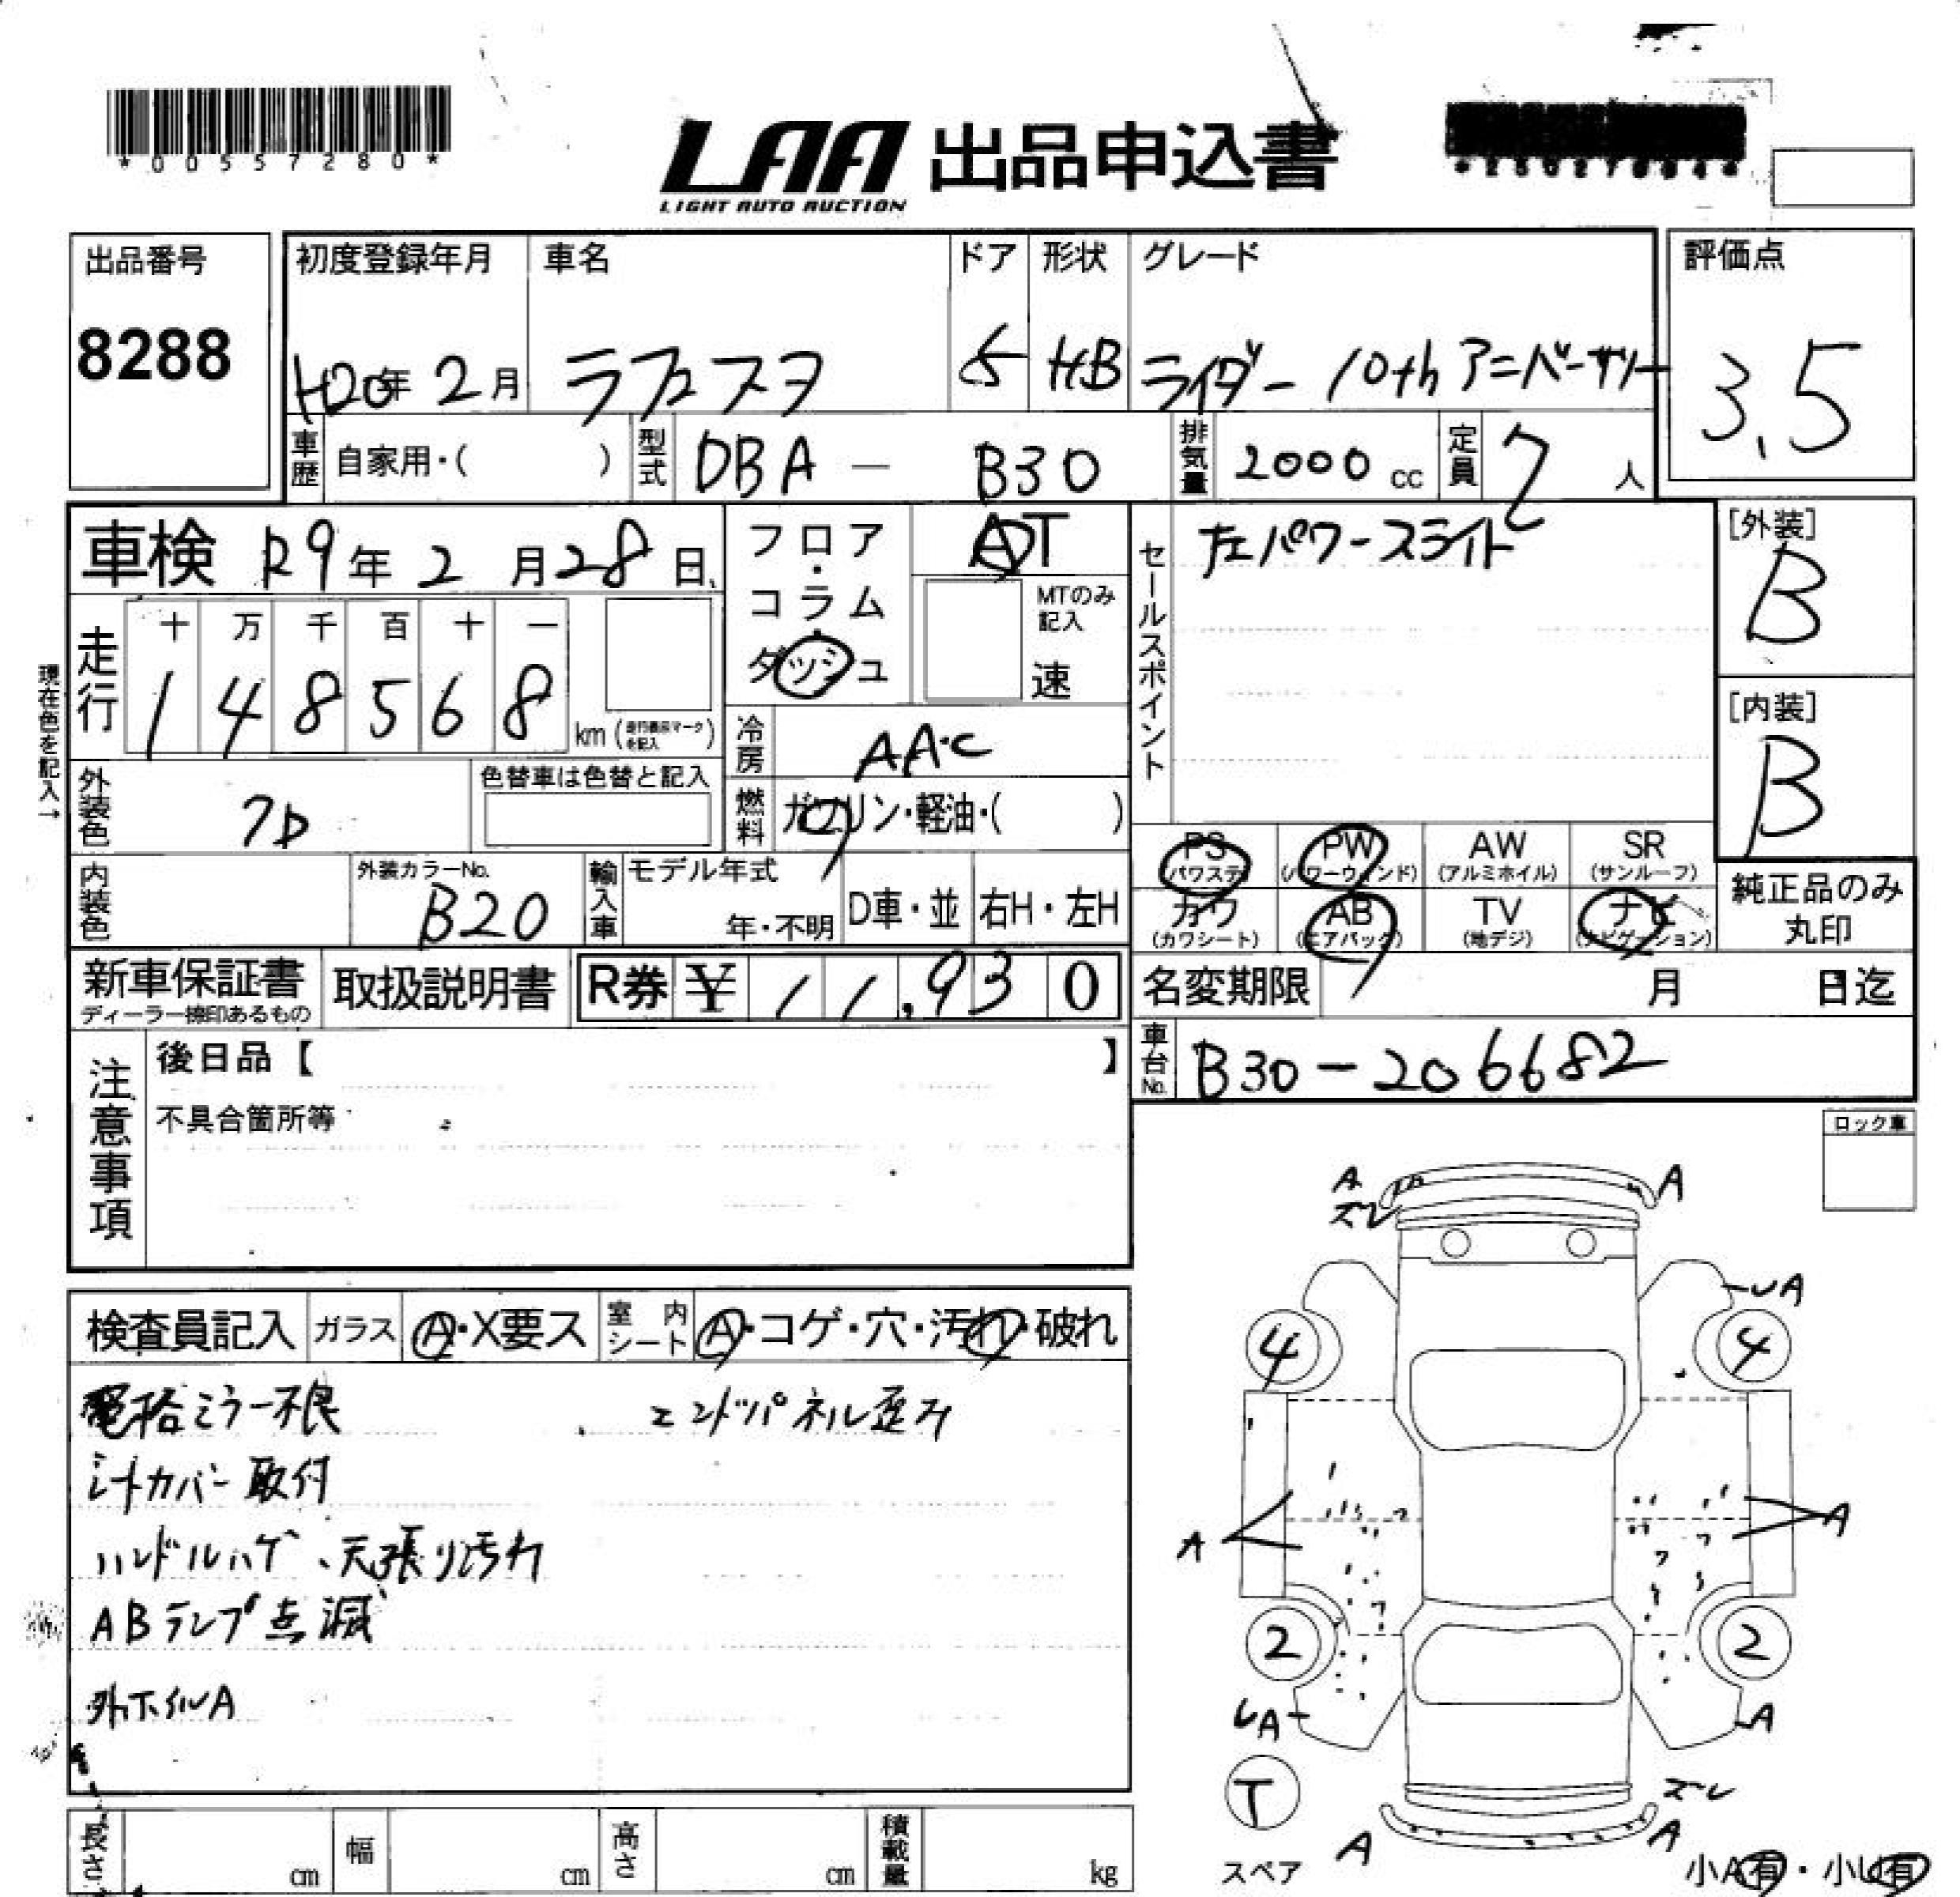 *00557280*
LAA 出品申込書
LIGHT AUTO AUCTION
出品番号
8288
初度登録年月
H20年 2月
車名
ラフェスタ
ドア
5
形状
HB
グレード
ライダー 10th アニバーサリー
評価点
3.5
車歴 自家用・( )
型式 DBA - B30
排気量 2000 cc
定員 7 人
車検 R9年 2月 28日
フロア・コラム・ダッシュ
AT
MTのみ記入
速
セールスポイント
左パワースライド
[外装]
B
[内装]
B
現在色を記入→
走行
十 万 千 百 十 一
1 4 8 5 6 8 km
冷房 AAC
外装色
色替車は色替と記入
燃料 ガソリン・軽油・( )
内装色
外装カラーNo.
B20
輸入車
モデル年式
年・不明
D車・並
右H・左H
PS (パワステ)
PW (パワーウィンド)
AW (アルミホイル)
SR (サンルーフ)
カワ (カワシート)
AB (エアバック)
TV (地デジ)
ナビ (ナビゲーション)
純正品のみ丸印
新車保証書
ディーラー捺印あるもの
取扱説明書
R券 ¥ 11,930
名変期限 月 日迄
車台No. B30-206682
注意事項
後日品【 】
不具合箇所等
ロック車
検査員記入
ガラス A・X要ス
室内シート A・コゲ・穴・汚れ・破れ
電格ミラー不良
エンドパネル歪み
シートカバー取付
ハンドルハゲ、天張り汚れ
ABランプ点滅
外ホイルA
A
ズレ
A
UA
4
4
A
A
2
2
UA
A
T
スペア
ズレ
A
A
小A有・小U有
長さ cm
幅 cm
高さ cm
積載量 kg